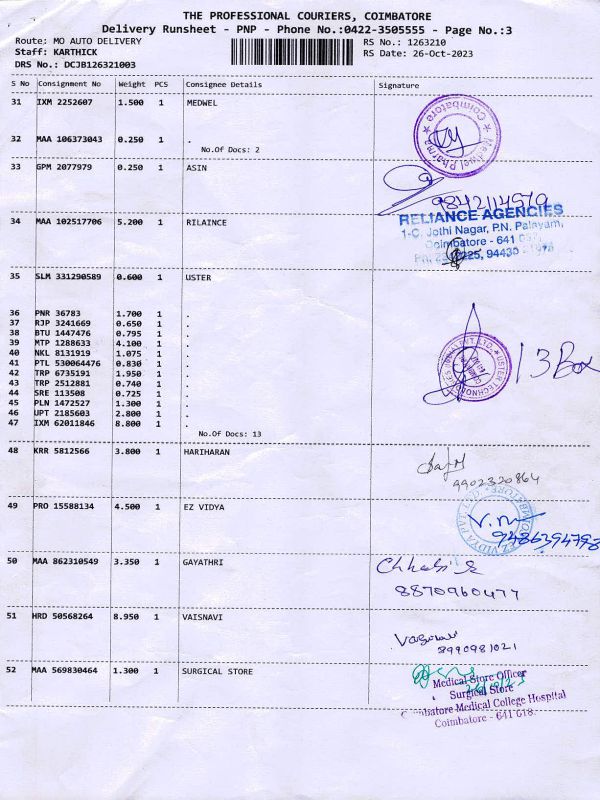 THE PROFESSIONAL COURIERS, COIMBATORE
Delivery Runsheet - PNP - Phone No.:0422-3505555 - Page No.:3
Route: MO AUTO DELIVERY
RS No.: 1263210
Staff: KARTHICK
RS Date: 26-Oct-2023
DRS No.: DCJB126321003
S No Consignment No Weight PCS Consignee Details Signature
31 IXM 2252607 1.500 1 MEDWEL
Medwel Pharma Coimbatore
32 MAA 106373043 0.250 1 .
No.Of Docs: 2
33 GPM 2077979 0.250 1 ASIN
34 MAA 102517706 5.200 1 RILAINCE
RELIANCE AGENCIES
1-C, Jothi Nagar, P.N. Palayam,
Coimbatore - 641
35 SLM 331290589 0.600 1 USTER
36 PNR 36783 1.700 1 .
37 RJP 3241669 0.650 1 .
38 BTU 1447476 0.795 1 .
39 MTP 1288633 4.100 1 .
40 NKL 8131919 1.075 1 .
41 PTL 530064476 0.830 1 .
42 TRP 6735191 1.950 1 .
43 TRP 2512881 0.740 1 .
44 SRE 113508 0.725 1 .
45 PLN 1472527 1.300 1 .
46 UPT 2185603 2.800 1 .
47 IXM 62011846 8.800 1 .
No.Of Docs: 13
13 Box
48 KRR 5812566 3.800 1 HARIHARAN
9902320864
49 PRO 15588134 4.500 1 EZ VIDYA
9486394798
50 MAA 862310549 3.350 1 GAYATHRI
8870960477
51 HRD 50568264 8.950 1 VAISNAVI
8990981021
52 MAA 569830464 1.300 1 SURGICAL STORE
Medical Store Officer
Surgical Store
Coimbatore Medical College Hospital
Coimbatore - 641 018.